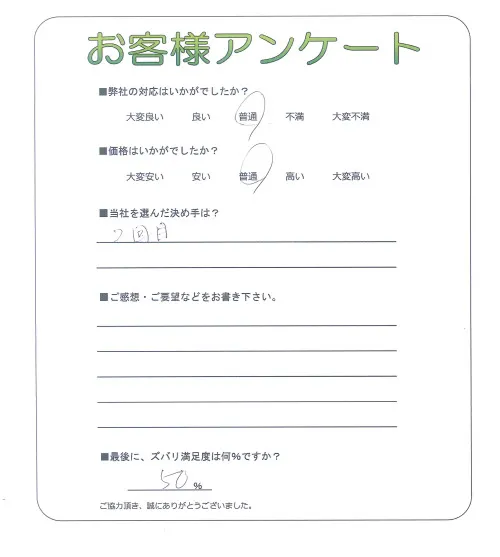 お客様アンケート
■弊社の対応はいかがでしたか？
大変良い 良い 普通 不満 大変不満
■価格はいかがでしたか？
大変安い 安い 普通 高い 大変高い
■当社を選んだ決め手は？
2回目
■ご感想・ご要望などをお書き下さい。
■最後に、ズバリ満足度は何%ですか？
50%
ご協力頂き、誠にありがとうございました。